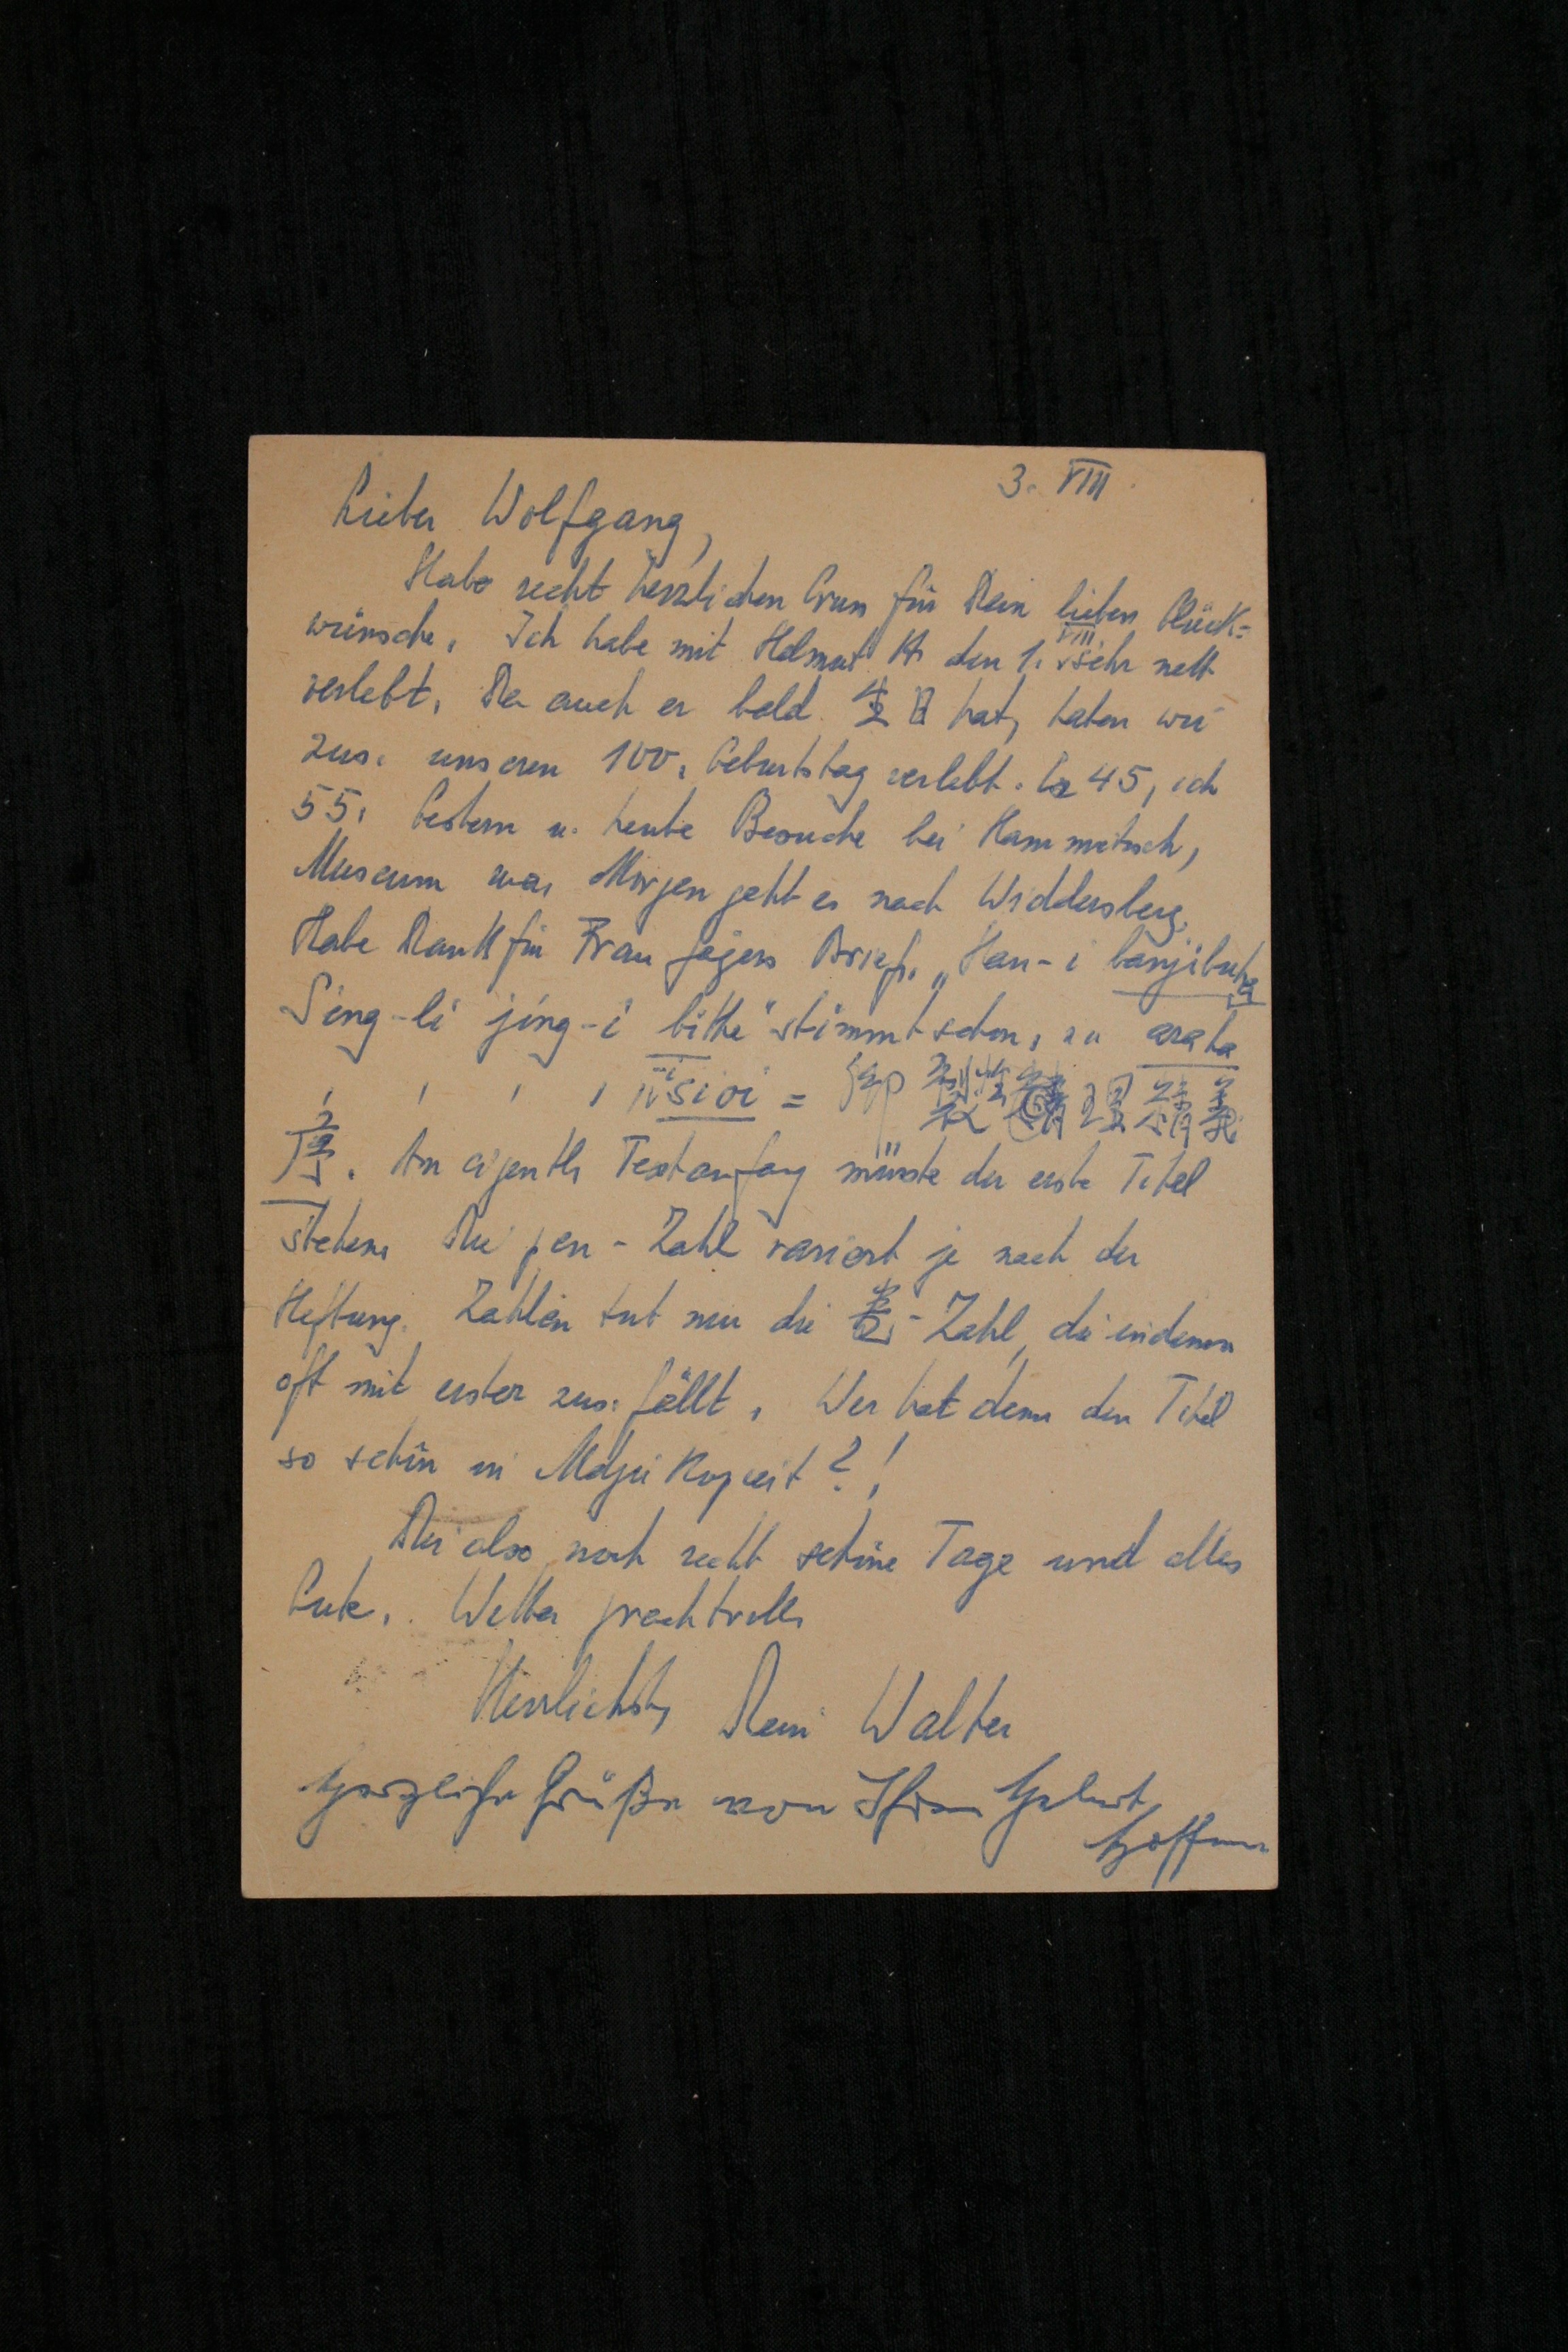 3. VIII.
Lieber Wolfgang,
Habe recht herzlichen Gruss für Dein lieben Glück=
wünsche. Ich habe mit Helmut H. den 1. VIII. sehr nett
verlebt. Da auch er bald 生日 hat, haben wir
zus. unseren 100. Geburtstag verlebt. Er 45, ich
55. Gestern u. heute Besuche bei Hammitzsch,
Museum usw. Morgen geht es nach Widdersberg.
Habe Dank für Frau Jägers Brief. „Han-i banjibuha
Sing-li jing-i bithe" stimmt schon, zu araha
šioi = 御 製 性理精義
序. Am eigentl. Textanfang müsste der erste Titel
stehen. Die pen-Zahl variiert je nach der
Heftung. Zählen tut nur die 卷-Zahl, die indessen
oft mit erster zus. fällt. Wer hat denn den Titel
so schön in Mdju kopiert?!
Dir also noch recht schöne Tage und alles
Gute. Wetter prachtvoll.
Herzlichst, Dein Walter
Herzliche Grüße von Ihrem Helmut
Hoffmann